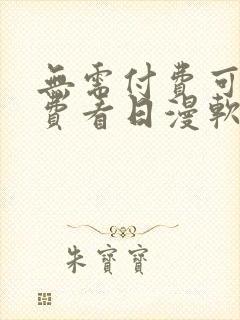 無需付費可
費看日漫軟
朱寶寶